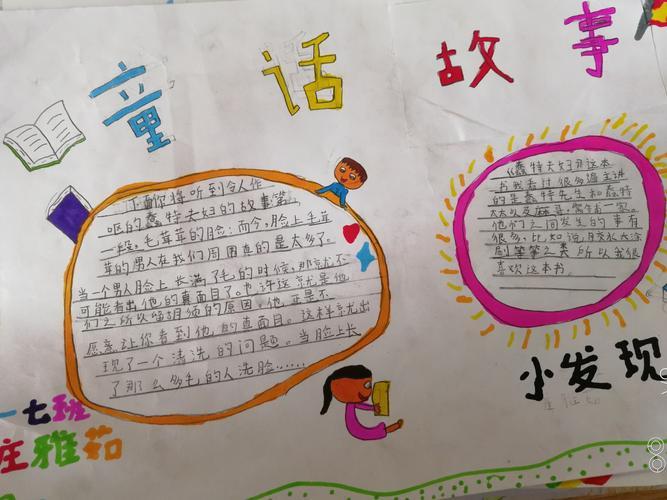 童话故事
正面你将听到令人作
呕的蠢特夫妇的故事第
一段。毛茸茸的脸：而今，脸上毛茸
茸的男人在我们周围真的是太多了。
当一个男人脸上长满了毛的时候，那就不
可能看出他的真面目了。也许这就是他
们之所以留胡须的原因，他正是不
愿意让你看到他的真面目。这样就出
现了一个清洗的问题。当脸上长
了那么多毛的人洗脸……
《蠢特夫妇》这本
书我看过很多遍主讲
的是蠢特先生和蠢特
太太以及
他们之间发生的事有
很多，比如说
刷等等之类所以我很
喜欢这本书。
小发现
一七班
庄雅茹